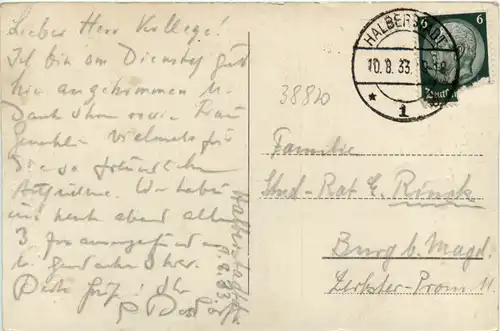 Lieber Herr Kollege!
Ich bin am Dienstag gut
hier angekommen u.
Danke Ihnen sowie Frau
Gemahlin vielmals für
diese freundliche
Aufnahme. Wir haben
uns heute abend alle
3
Beste Grüße! Ihr
Halberstadt
9.8.33
HALBERSTADT
10.8.33
* 1
6 6
38820
Familie
Stud-Rat E. Rinck
Burg b. Magd.
Zerbster-Prom 11.